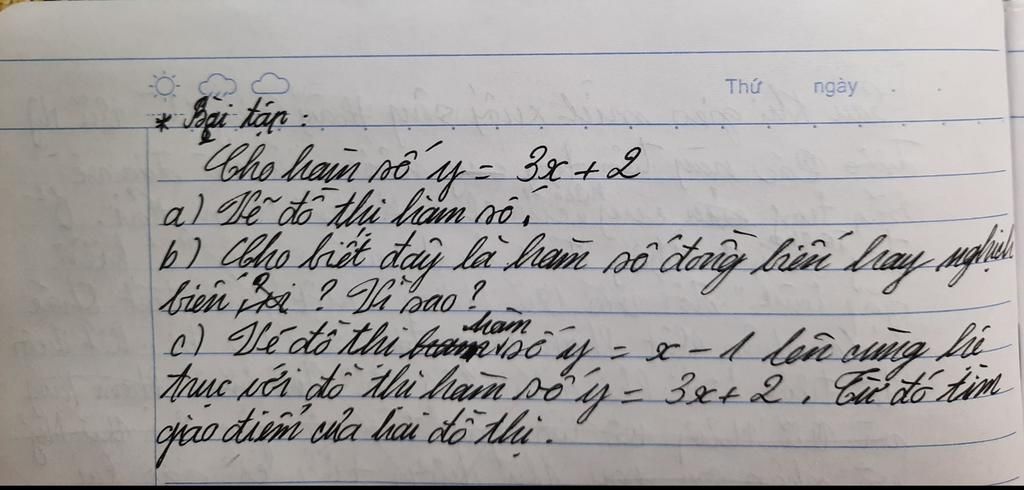 Thứ ngày
* Bài tập :
Cho hàm số y = 3x + 2
a) Vẽ đồ thị hàm số.
b) Cho biết đây là hàm số đồng biến hay nghịch
biến ? Vì sao ?
c) Vẽ đồ thị hàm số y = x - 1 lên cùng hệ
trục với đồ thị hàm số y = 3x + 2 . Từ đó tìm
giao điểm của hai đồ thị .